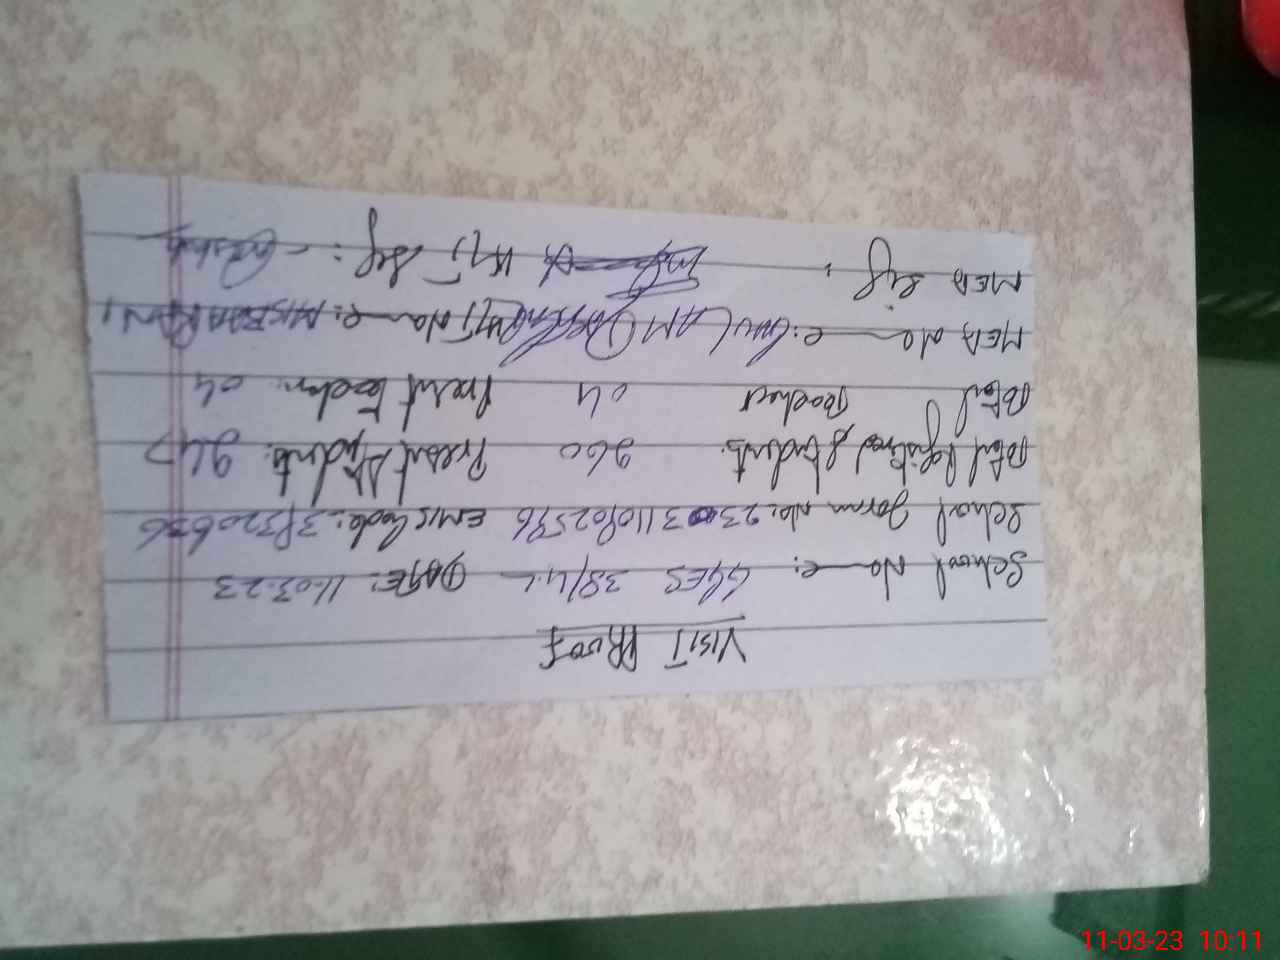 VISIT PROOF
School Name: GGES 38/4.L DATE: 11.03.23
School Form No: 23 3110902596 EMIS Code: 39320636
Total Registered Students: 260 Present Students: 247
Total Teacher 04 Present Teacher: 04
MEA Name: GHULAM H/T Name:
MEA Sig: H/T Sig:
11-03-23 10:11